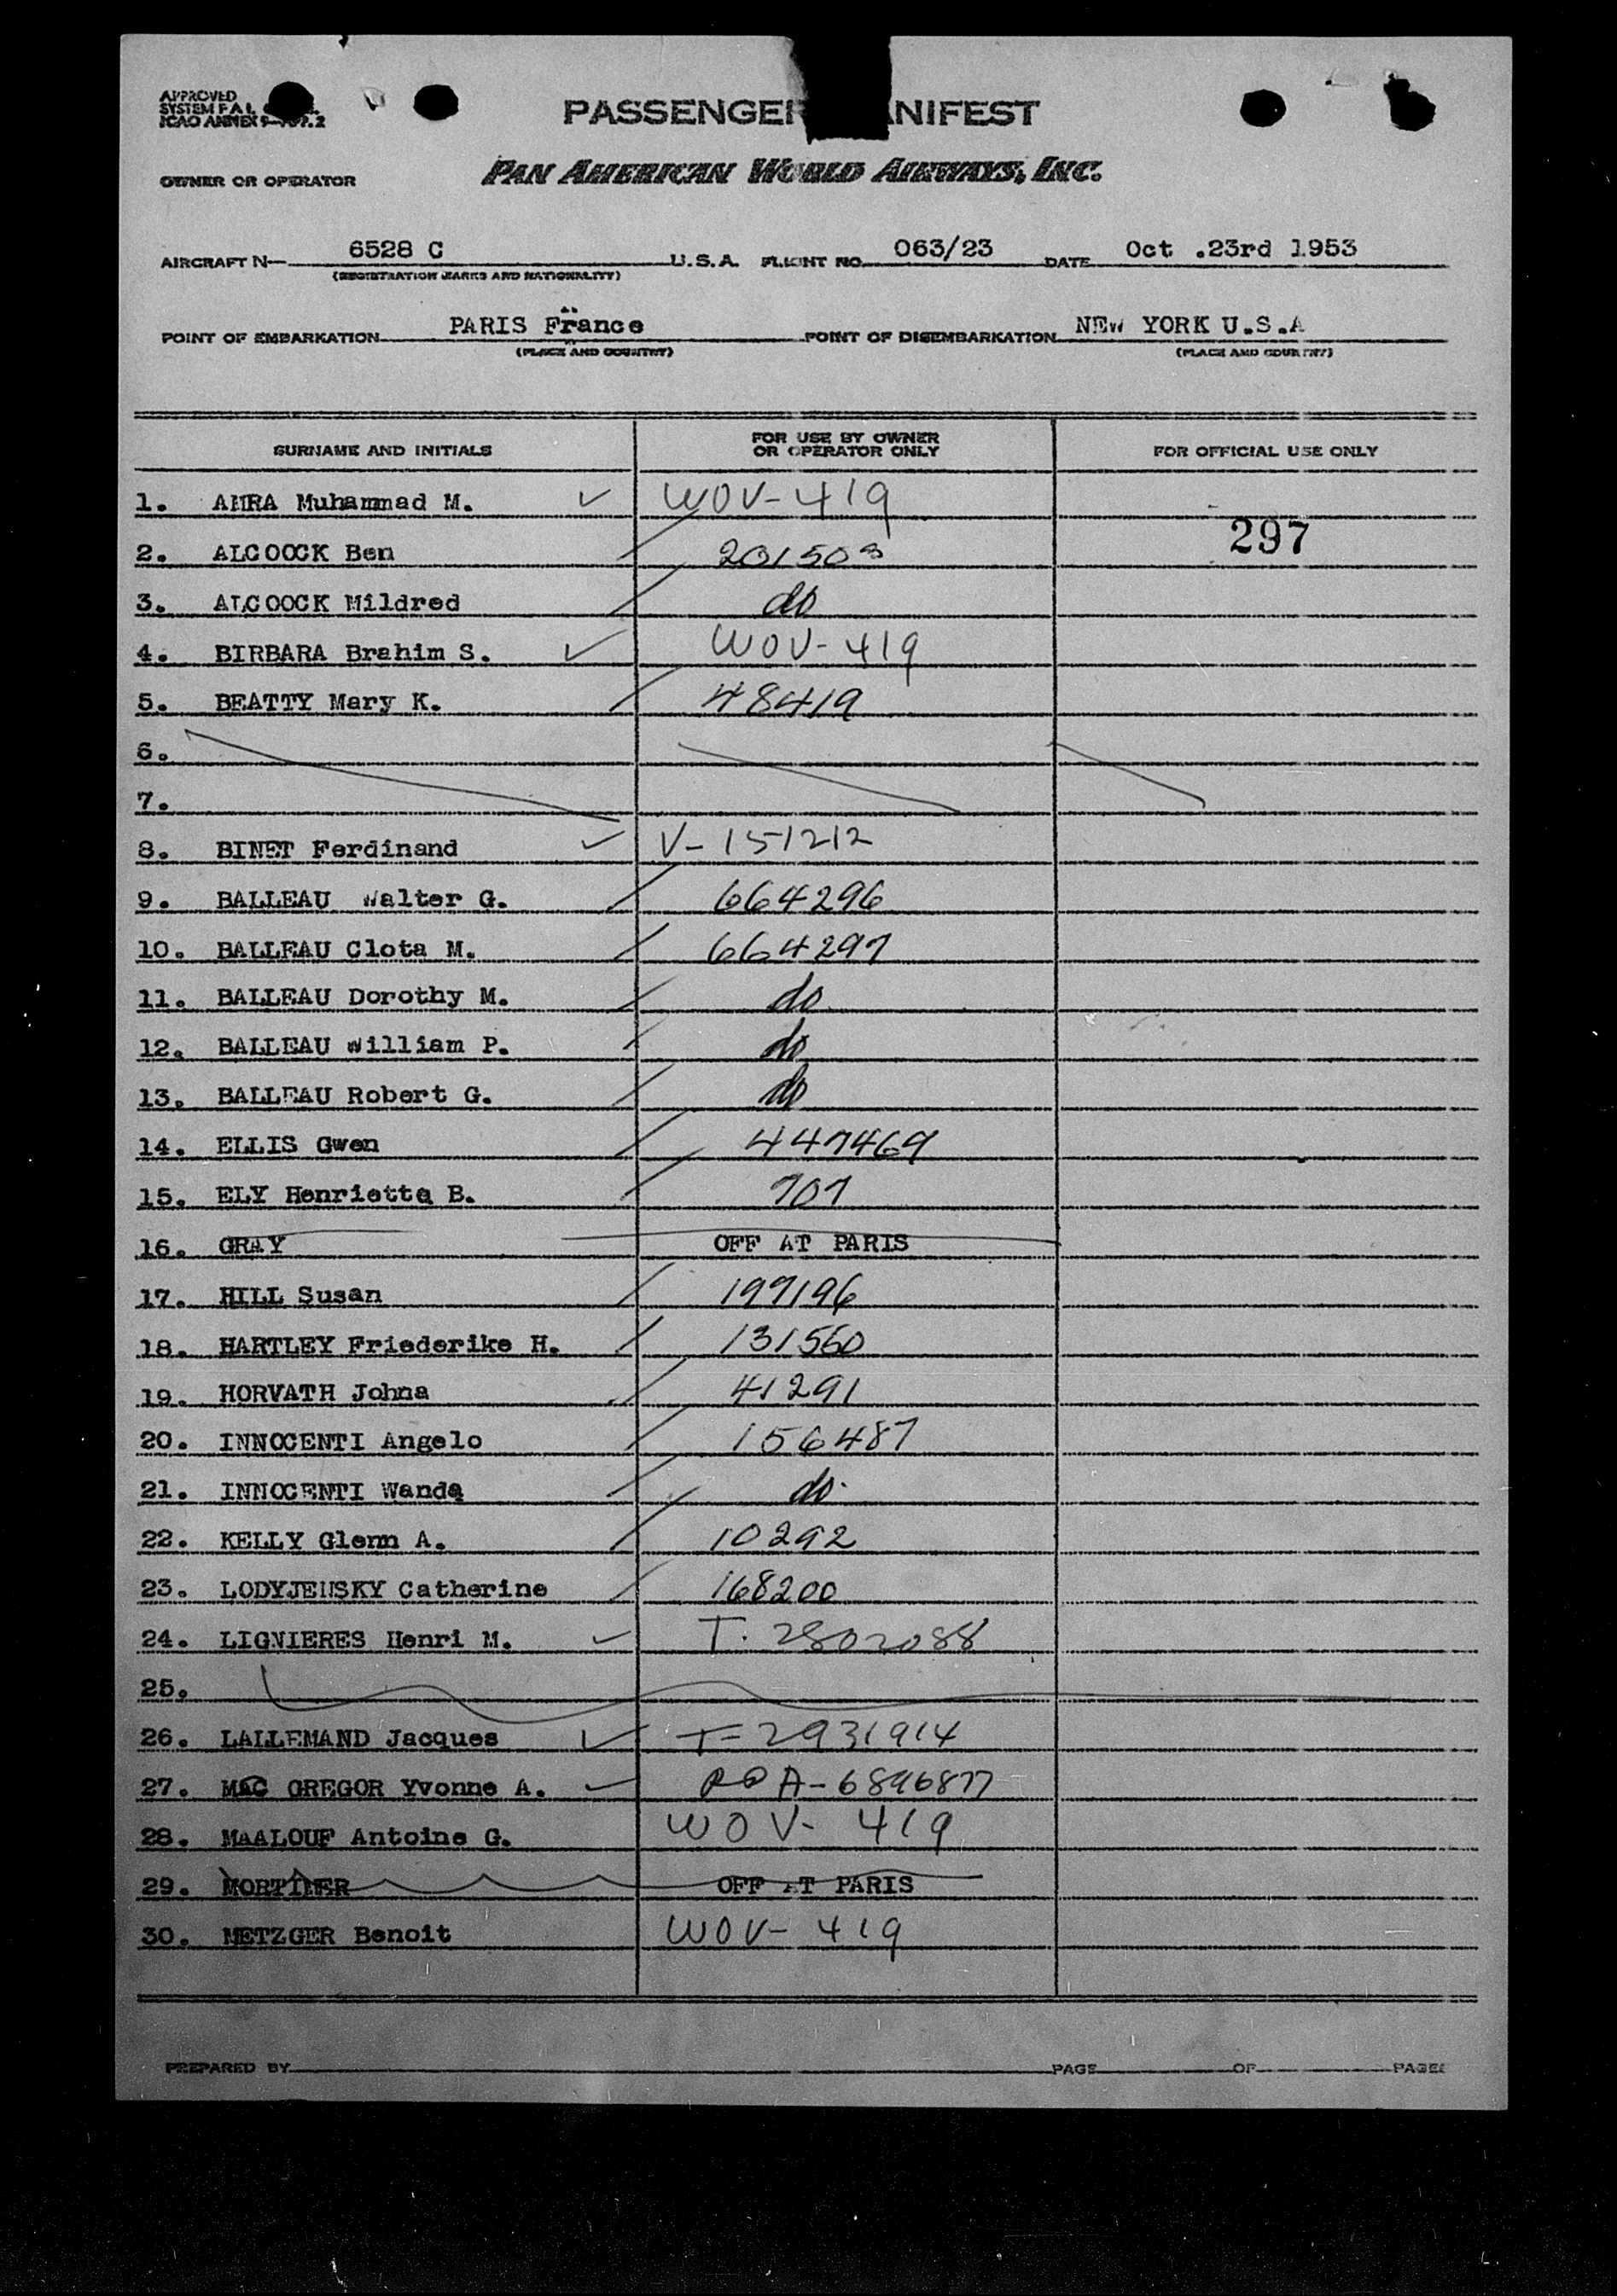 APPROVED
SYSTEM F.A.L.
ICAO ANNEX 9
PASSENGER MANIFEST
OWNER OR OPERATOR PAN AMERICAN WORLD AIRWAYS, INC.
AIRCRAFT N— 6528 C U.S.A. FLIGHT NO. 063/23 DATE Oct .23rd 1953
(REGISTRATION MARKS AND NATIONALITY)
POINT OF EMBARKATION PARIS France POINT OF DISEMBARKATION NEW YORK U.S.A
(PLACE AND COUNTRY) (PLACE AND COUNTRY)
SURNAME AND INITIALS FOR USE BY OWNER OR OPERATOR ONLY FOR OFFICIAL USE ONLY
1. AMRA Muhammad M. ✓ WOV-419
297
2. ALCOOCK Ben / 201503
3. ALCOOCK Mildred / do
4. BIRBARA Brahim S. ✓ WOV-419
5. BEATTY Mary K. / 48419
6.
7.
8. BINET Ferdinand ✓ V-151212
9. BALLEAU Walter G. / 664296
10. BALLEAU Clota M. / 664297
11. BALLEAU Dorothy M. / do
12. BALLEAU William P. / do
13. BALLEAU Robert G. / do
14. ELLIS Gwen / 447469
15. ELY Henrietta B. / 707
16. GRAY OFF AT PARIS
17. HILL Susan / 197196
18. HARTLEY Friederike H. / 131560
19. HORVATH Johna / 41291
20. INNOCENTI Angelo / 156487
21. INNOCENTI Wanda / do.
22. KELLY Glenn A. / 10292
23. LODYJENSKY Catherine / 168200
24. LIGNIERES Henri M. ✓ T. 2802088
25.
26. LALLEMAND Jacques ✓ T-2931914
27. MAC GREGOR Yvonne A. ✓ A-6896877
28. MAALOUF Antoine G. WOV-419
29. MORTIMER OFF AT PARIS
30. METZGER Benoit WOV-419
PREPARED BY PAGE OF PAGES